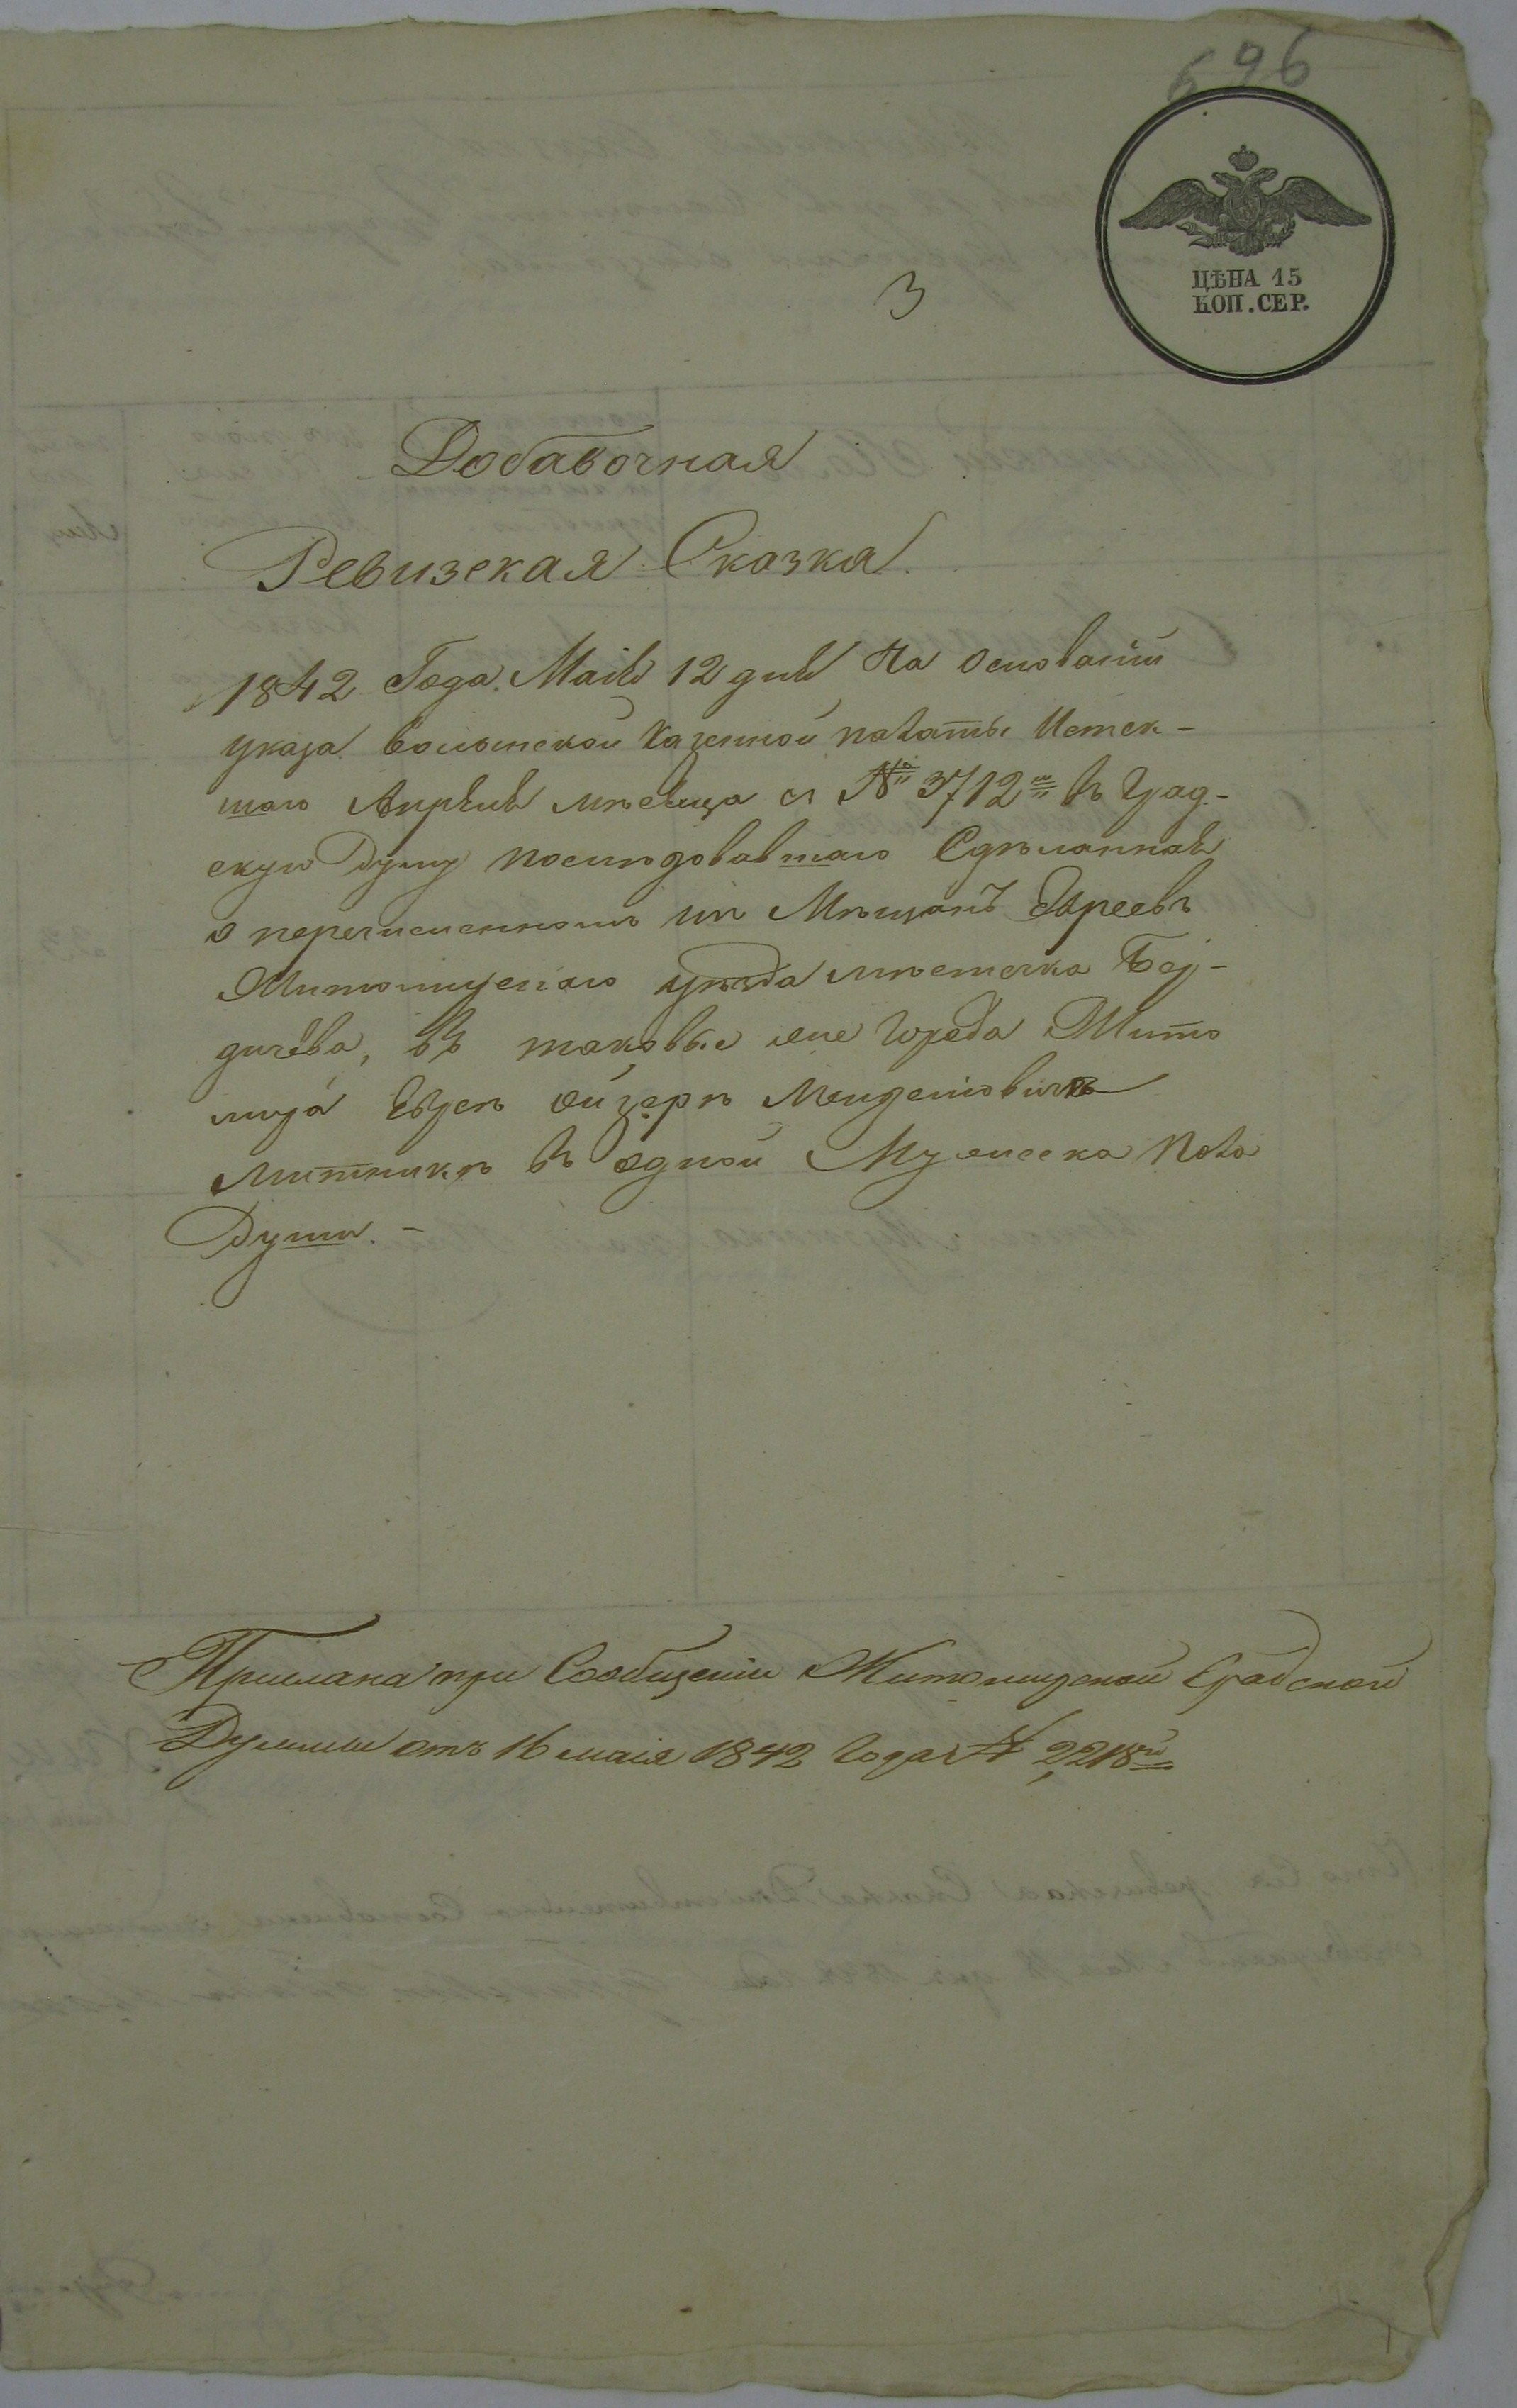 696
ЦѢНА 15
КОП. СЕР.
3
Добавочная
Ревизская Сказка
1842 Года Маія 12 дня На основаніи
указа Волынской Казенной палаты Истек-
шаго Апрѣля мѣсяца с № 3712м въ Град-
скую Думу последовавшаго Сдѣланная
о перечисленномъ изъ Мѣщанъ Евреевъ
Житомирскаго уѣзда мѣстечка Бер-
дичева, въ таковые же города Жито
мира Евреѣ Ойзерѣ Менделовичѣ
Литникѣ въ одной Мужеска пола
Души. -
Прислана при Сообщеніи Житомирской Градской
Думы отъ 16 маія 1842 года № 2218й